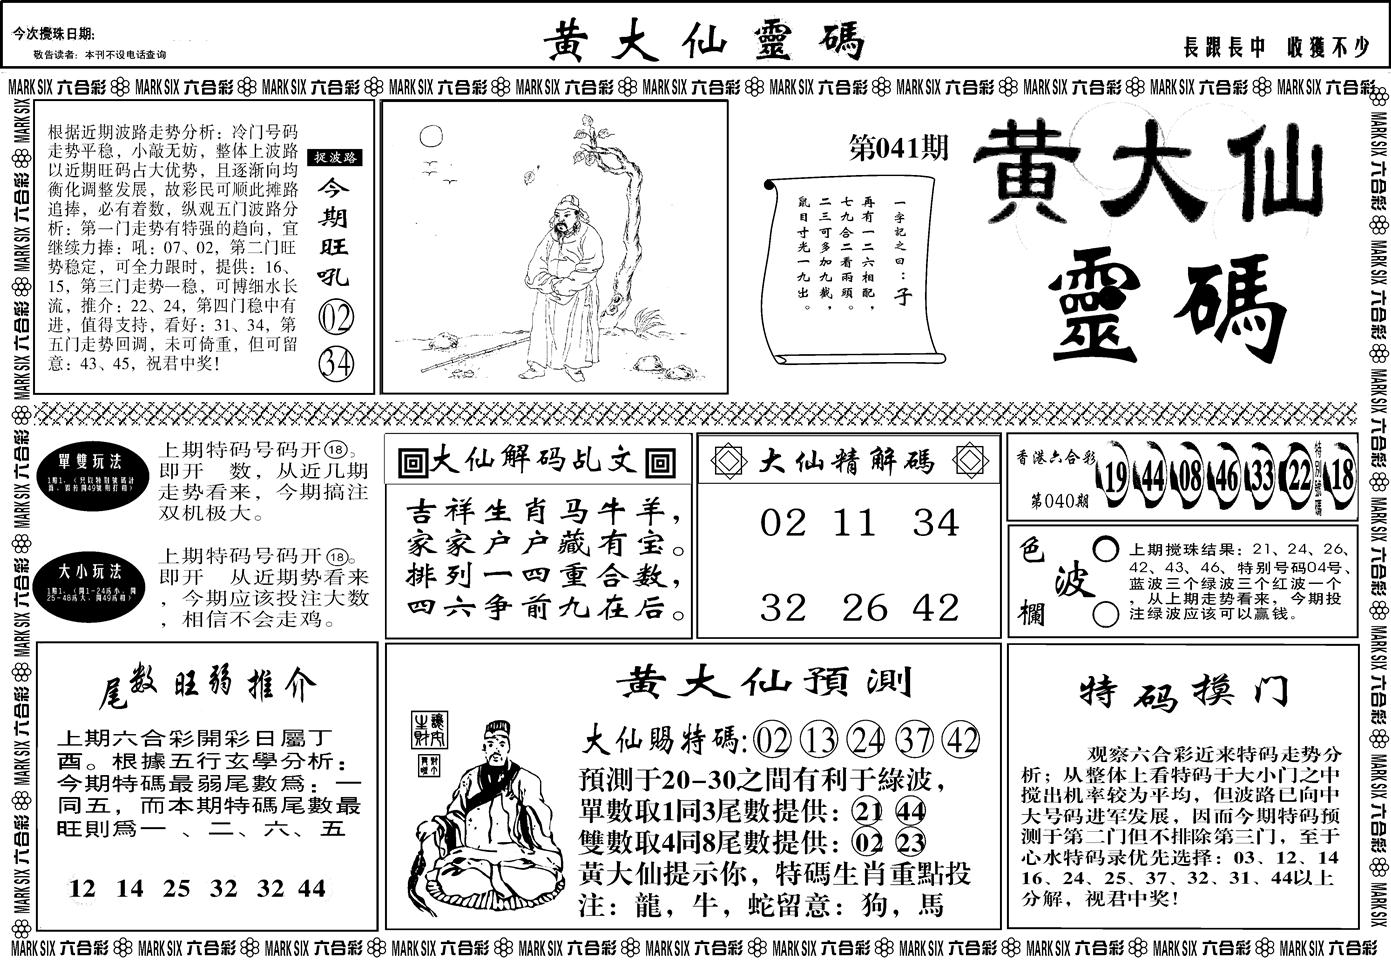 今次攪珠日期:
敬告读者: 本刊不设电话查询
黄大仙靈碼
長跟長中 收獲不少
MARK SIX 六合彩 MARK SIX 六合彩 MARK SIX 六合彩 MARK SIX 六合彩 MARK SIX 六合彩 MARK SIX 六合彩 MARK SIX 六合彩 MARK SIX 六合彩 MARK SIX 六合彩 MARK SIX 六合彩 MARK SIX 六合彩
根据近期波路走势分析: 冷门号码
走势平稳, 小敲无妨, 整体上波路
以近期旺码占大优势, 且逐渐向均
衡化调整发展, 故彩民可顺此摊路
追捧, 必有着数, 纵观五门波路分
析: 第一门走势有特强的趋向, 宜
继续力捧: 吼: 07、02, 第二门旺
势稳定, 可全力跟时, 提供: 16、
15, 第三门走势一稳, 可博细水长
流, 推介: 22、24, 第四门稳中有
进, 值得支持, 看好: 31、34, 第
五门走势回调, 未可倚重, 但可留
意: 43、45, 祝君中奖!
捉波路
今期旺吼
02
34
第041期
一字記之曰:子
再有一二六相配,
七九合二看兩頭。
二三可多加九截,
鼠目寸光一九出。
黄大仙
靈碼
單雙玩法
上期特码号码开⑱。
即开 数, 从近几期
走势看来, 今期搞注
双机极大。
大小玩法
上期特码号码开⑱。
即开 从近期势看来
, 今期应该投注大数
, 相信不会走鸡。
大仙解码乩文
吉祥生肖马牛羊,
家家户户藏有宝。
排列一四重合数,
四六争前九在后。
大仙精解碼
02 11 34
32 26 42
香港六合彩
第040期
19 44 08 46 33 22 特別號碼 18
色波欄
上期搅珠结果: 21、24、26、
42、43、46、特别号码04号、
蓝波三个绿波三个红波一个
, 从上期走势看来, 今期投
注绿波应该可以赢钱。
尾数旺弱推介
上期六合彩開彩日屬丁
酉。根據五行玄學分析:
今期特碼最弱尾數爲: 一
同五, 而本期特碼尾數最
旺則爲一 、二、六、五
12 14 25 32 32 44
黄大仙預測
大仙賜特碼: 02 13 24 37 42
預測于20-30之間有利于綠波,
單數取1同3尾數提供: 21 44
雙數取4同8尾數提供: 02 23
黃大仙提示你, 特碼生肖重點投
注: 龍, 牛, 蛇留意: 狗, 馬
特码摸门
观察六合彩近来特码走势分
析; 从整体上看特码于大小门之中
搅出机率较为平均, 但波路已向中
大号码进军发展, 因而今期特码预
测于第二门但不排除第三门, 至于
心水特码录优先选择: 03、12、14
16、24、25、37、32、31、44以上
分解, 祝君中奖!
MARK SIX 六合彩 MARK SIX 六合彩 MARK SIX 六合彩 MARK SIX 六合彩 MARK SIX 六合彩 MARK SIX 六合彩 MARK SIX 六合彩 MARK SIX 六合彩 MARK SIX 六合彩 MARK SIX 六合彩 MARK SIX 六合彩